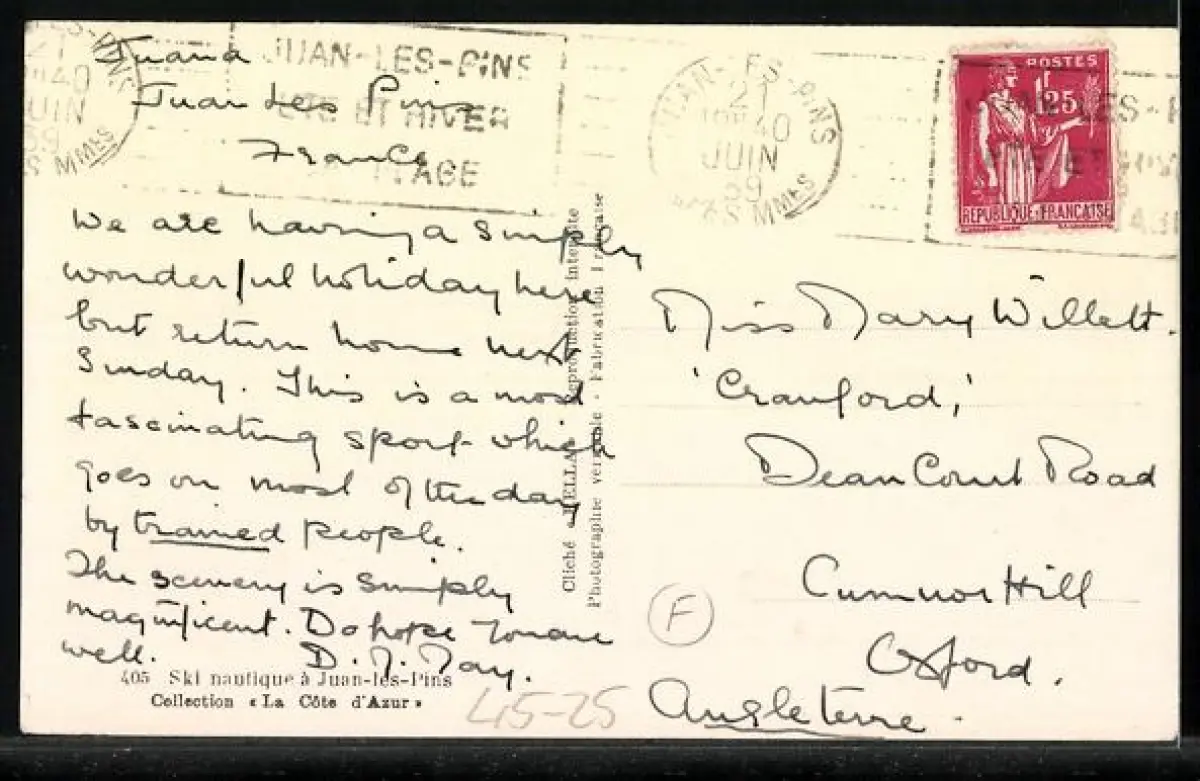 Juana
Juan Les Pins
France
We are having a simply
wonderful holiday here
but return home next
Sunday. This is a most
fascinating sport which
goes on most of the day
by trained people.
The scenery is simply
magnificent. Do hope you are
well. D. J. Day.
405 Ski nautique à Juan-les-Pins
Collection « La Côte d'Azur »
JUAN-LES-PINS
ETE ET HIVER
JUAN-LES-PINS
21
40
JUIN
39
MMES
Cliché « ELLA » Reproduction interdite
Photographie véritable - Fabrication Française
POSTES
1F25
REPUBLIQUE FRANÇAISE
Miss Mary Willett.
'Cranford,'
Dean Court Road
Cumnor Hill
Oxford.
Angleterre.
F
45-25